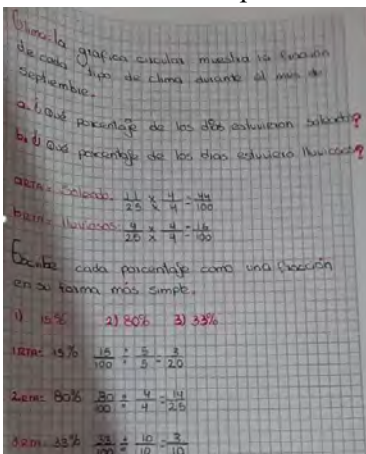 Clima: la gráfica circular muestra la fracción
de cada tipo de clima durante el mes de
Septiembre.
a. ¿Qué porcentaje de los días estuvieron soleados?
b. ¿Qué porcentaje de los días estuviero lluviosos?
aRTA= Soleado: 11/25 x 4/4 = 44/100
bRTA= lluviosos: 4/25 x 4/4 = 16/100
Escribe cada porcentaje como una fracción
en su forma más simple.
1) 15% 2) 80% 3) 33%
1RTA: 15% 15/100 ÷ 5/5 = 3/20
2RTA: 80% 80/100 ÷ 4/4 = 14/25
3RTA: 33% 33/100 ÷ 10/10 = 3/10